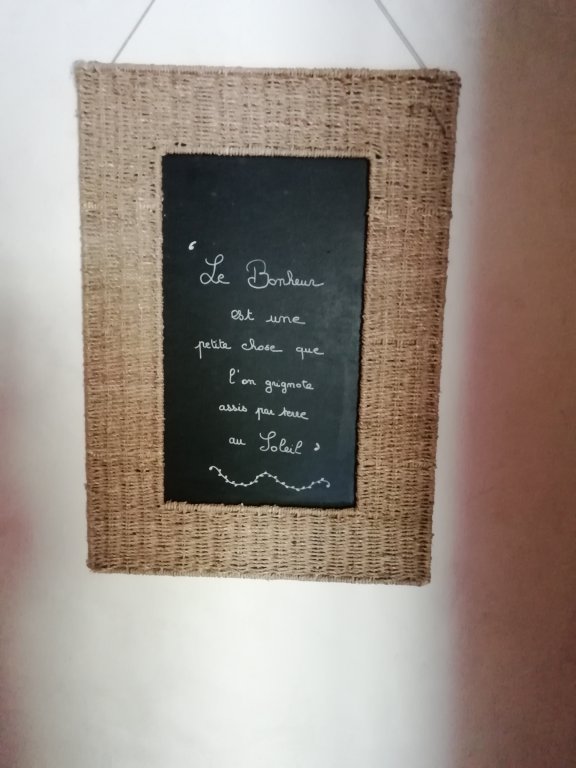 ‘ Le Bonheur
est une
petite chose que
l'on grignote
assis par terre
au Soleil ’